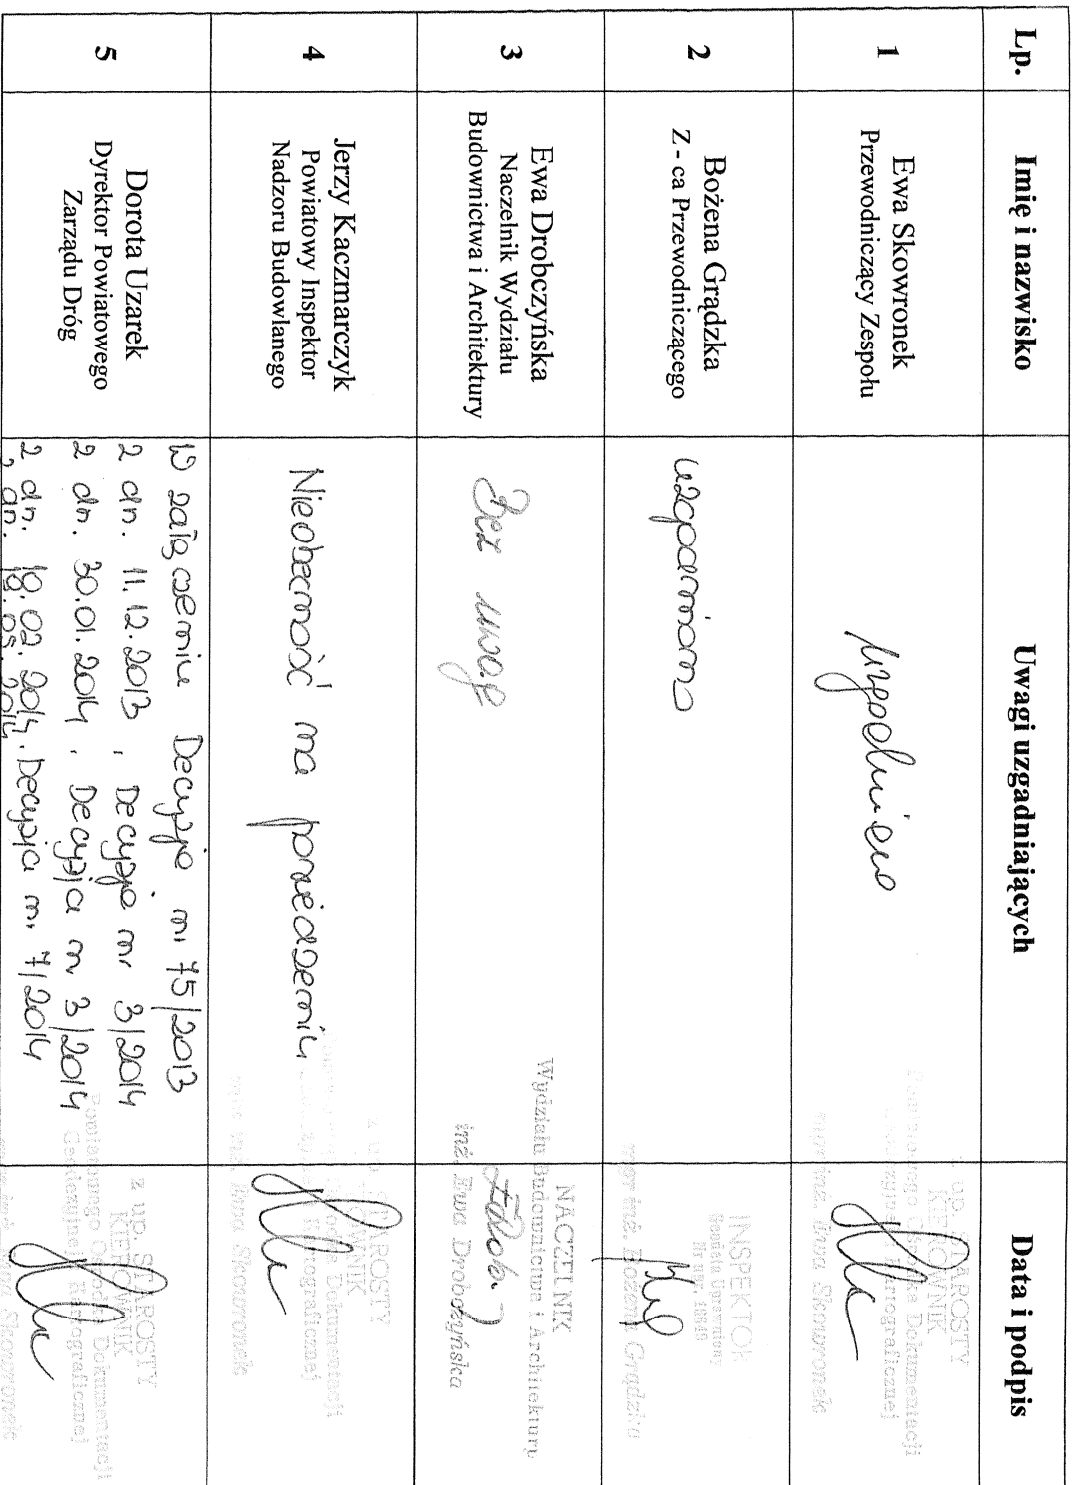 Lp.
Imię i nazwisko
Uwagi uzgadniających
Data i podpis
1
Ewa Skowronek
Przewodniczący Zespołu
uzgodniono
z up. STAROSTY
KIEROWNIK
Powiatowego Ośrodka Dokumentacji
Geodezyjnej i Kartograficznej
mgr inż. Ewa Skowronek
2
Bożena Grądzka
Z - ca Przewodniczącego
uzgodniono
INSPEKTOR
mgr inż. Bożena Grądzka
3
Ewa Drobczyńska
Naczelnik Wydziału
Budownictwa i Architektury
Bez uwag
NACZELNIK
Wydziału Budownictwa i Architektury
inż. Ewa Drobczyńska
4
Jerzy Kaczmarczyk
Powiatowy Inspektor
Nadzoru Budowlanego
Nieobecność na posiedzeniu
z up. STAROSTY
KIEROWNIK
Powiatowego Ośrodka Dokumentacji
Geodezyjnej i Kartograficznej
mgr inż. Ewa Skowronek
5
Dorota Uzarek
Dyrektor Powiatowego
Zarządu Dróg
W załączeniu Decyzja nr 75/2013
z dn. 11.12.2013, Decyzja nr 3/2014
z dn. 30.01.2014, Decyzja nr 3/2014
z dn. 10.02.2014, Decyzja nr 7/2014
z dn.
z up. STAROSTY
KIEROWNIK
Powiatowego Ośrodka Dokumentacji
Geodezyjnej i Kartograficznej
mgr inż. Ewa Skowronek